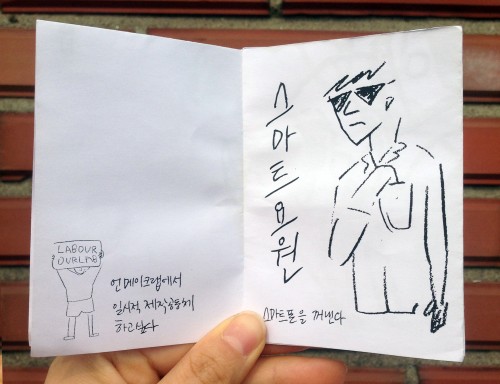 LABOUR
OURLAB
언메이크랩에서
일시적 제작공동체
스마트요원
스마트폰을 꺼낸다